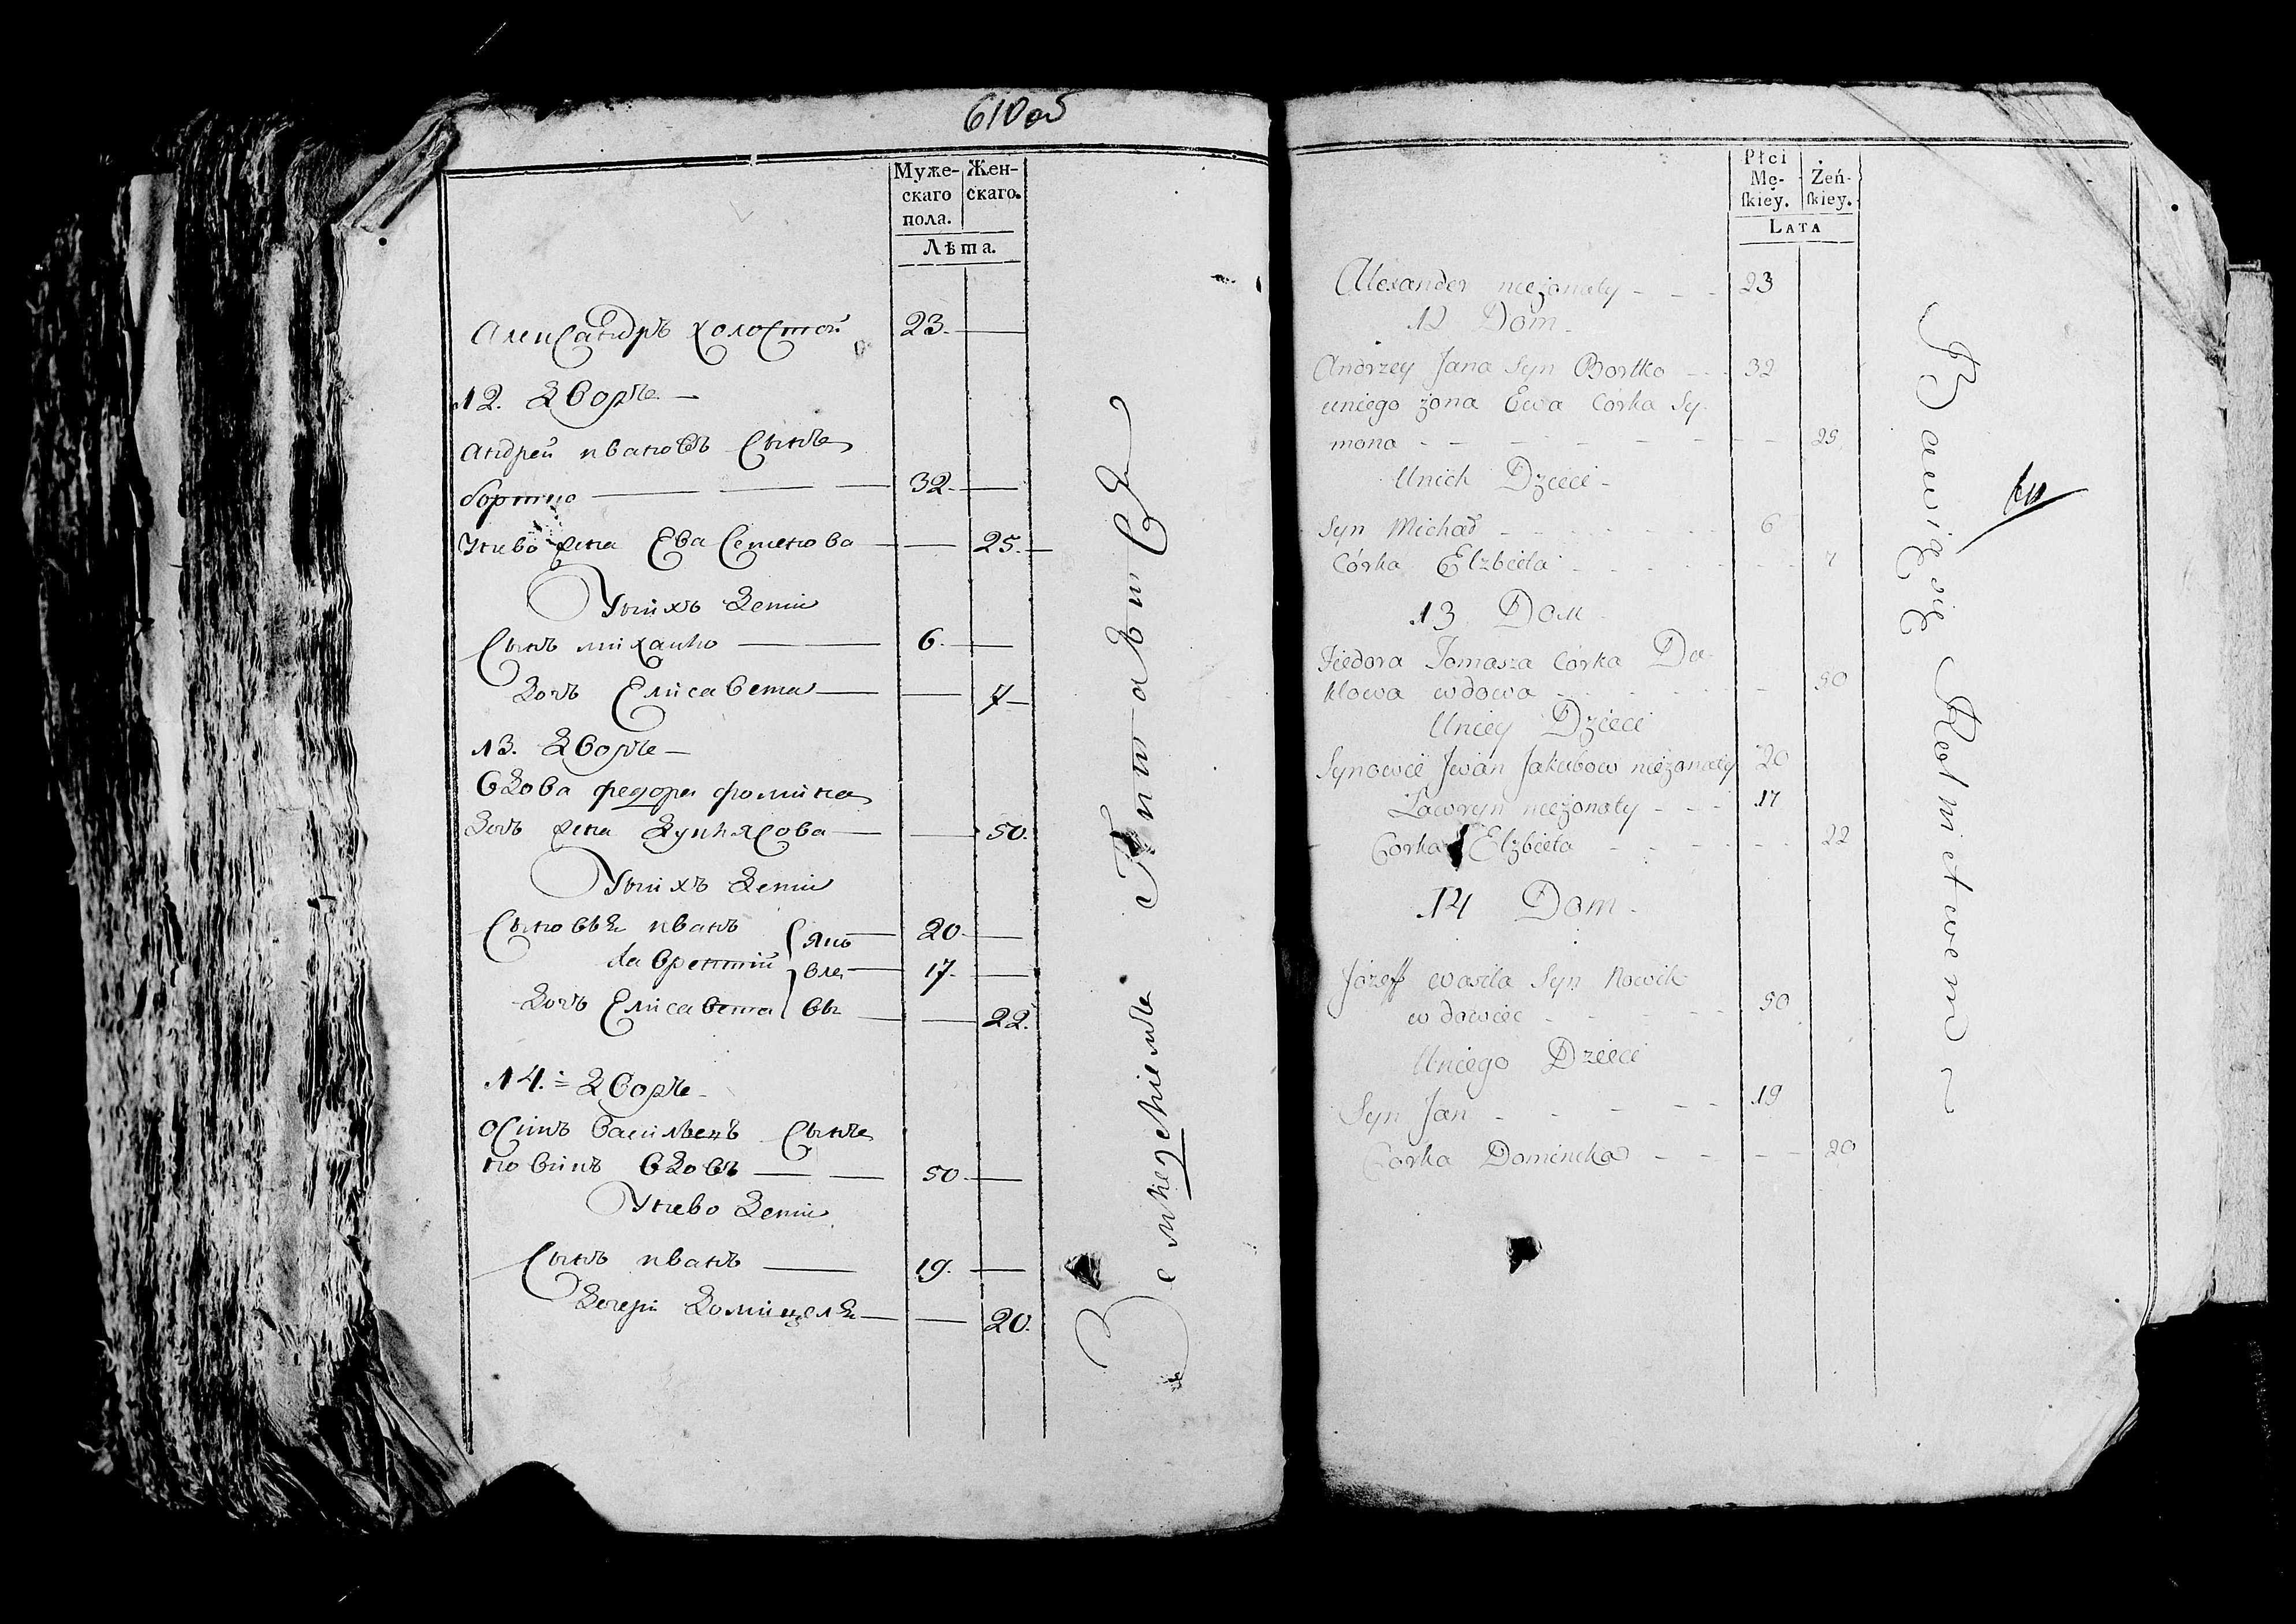 610об
Муже- Жен-
скаго скаго.
пола.
Лѣта.
Александръ холостой 23.
12. дворъ
Андрей ивановъ сынъ
бортко 32.
Унево жена Ева Семенова 25.
Унихъ дети
Сынъ михайло 6.
Дочь Елисавета 7
13. дворъ
вдова федора фомина
дочь жена
50.
Унихъ дети
Сыновья иванъ яко 20.
лаврентий вле 17.
Дочь Елисавета вы 22.
14. дворъ
Осипъ васильевъ сынъ
новикъ вдовъ 50
Унево дети
Сынъ иванъ 19.
Дочери 20.
Земледелиемъ питаются
Płci
Mę- Żeń-
ſkiey. ſkiey.
LATA
Alexander nieżonaty 23
12 Dom
Andrzey Jana Syn Bortko 32
uniego żona Ewa Corka Sy-
mona 25
Unich Dzieci
Syn Michał 6
Córka Elzbieta 7
13 Dom
Fiedora Tomasza Córka Du-
klowa wdowa 50
Uniey Dzieci
Synowie Jwan Jakubow nieżonaty 20
Ławryn nieżonaty 17
Corka Elzbieta 22
14 Dom
Józeff wasila Syn Nowik
wdowiec 50
Uniego Dzieci
Syn Jan 19
Corka Dominika 20
Bawią się Rolnictwem